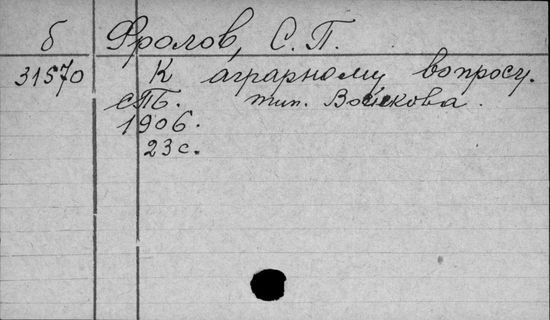 б Фролов, С. П.
31570 К аграрному вопросу.
СПБ. тип.
1906.
23 с.